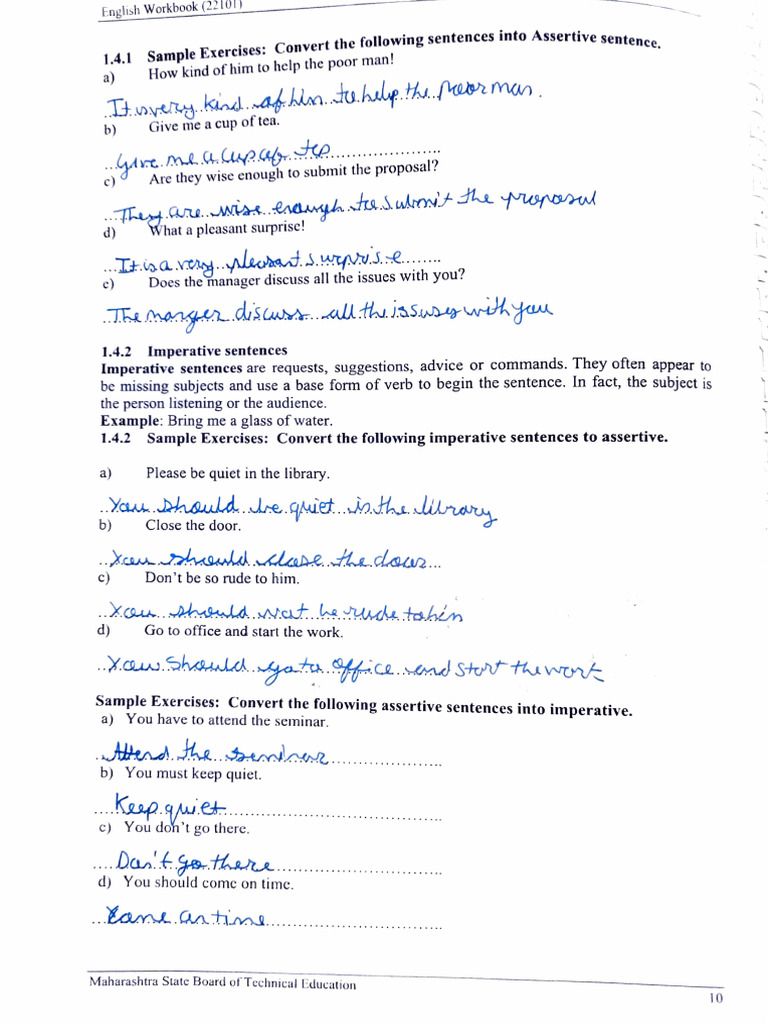 English Workbook (22101)
1.4.1 Sample Exercises: Convert the following sentences into Assertive sentence.
a) How kind of him to help the poor man!
It is very kind of him to help the poor man.
b) Give me a cup of tea.
Give me a cup of tea
c) Are they wise enough to submit the proposal?
They are wise enough to submit the proposal
d) What a pleasant surprise!
It is a very pleasant surprise
e) Does the manager discuss all the issues with you?
The manger discuss all the issues with you
1.4.2 Imperative sentences
Imperative sentences are requests, suggestions, advice or commands. They often appear to
be missing subjects and use a base form of verb to begin the sentence. In fact, the subject is
the person listening or the audience.
Example: Bring me a glass of water.
1.4.2 Sample Exercises: Convert the following imperative sentences to assertive.
a) Please be quiet in the library.
You should be quiet is the library
b) Close the door.
You should close the door
c) Don't be so rude to him.
You should not be rude to him
d) Go to office and start the work.
You should go to office and start the work
Sample Exercises: Convert the following assertive sentences into imperative.
a) You have to attend the seminar.
Attend the seminar
b) You must keep quiet.
Keep quiet
c) You don't go there.
Don't go there
d) You should come on time.
Come on time
Maharashtra State Board of Technical Education
10